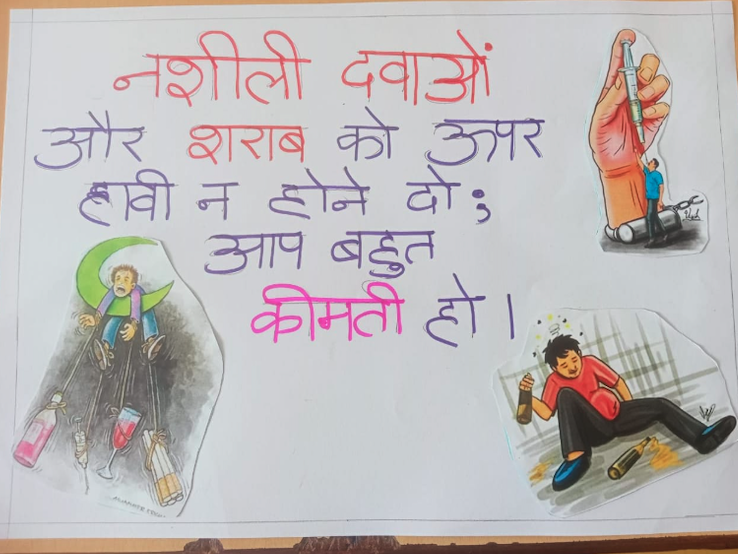 नशीली दवाओं
और शराब को ऊपर
हावी न होने दो;
आप बहुत
कीमती हो।